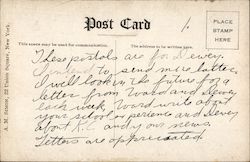 Post Card
1
PLACE
STAMP
HERE
This space may be used for communication.
The address to be written here.
A. M. Simon, 32 Union Square, New York.
These postals are for Dewey.
to send me a letter.
I will look in the future for a
letter from Ward and Dewey
each week. Ward write about
your school or persons and Dewey
about K.C and your news
Letters are appreciated